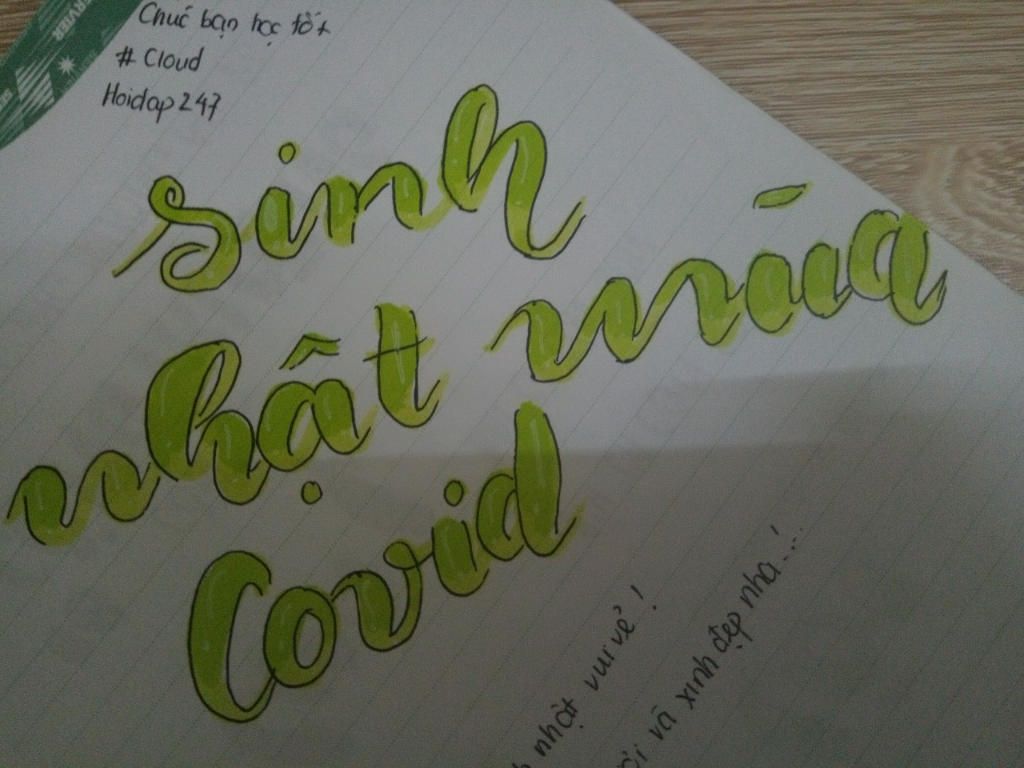 Chúc bạn học tốt
# Cloud
Hoidap247
sinh
nhật mùa
Covid
nhật vui vẻ !
và xinh đẹp nha...